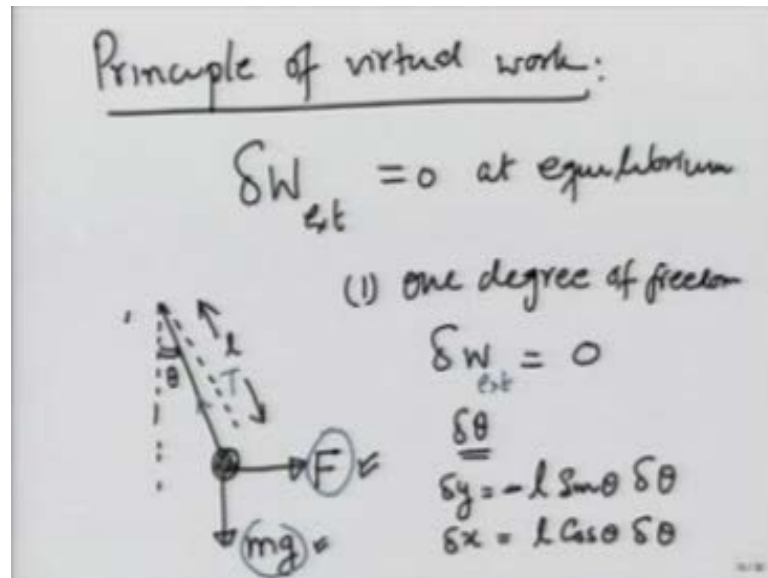 Principle of virtual work:
δW ext = 0 at equilibrium
(1) one degree of freedom
δW ext = 0
δθ
δy = - l Sinθ δθ
δx = l Cosθ δθ
θ
l
T
F
mg